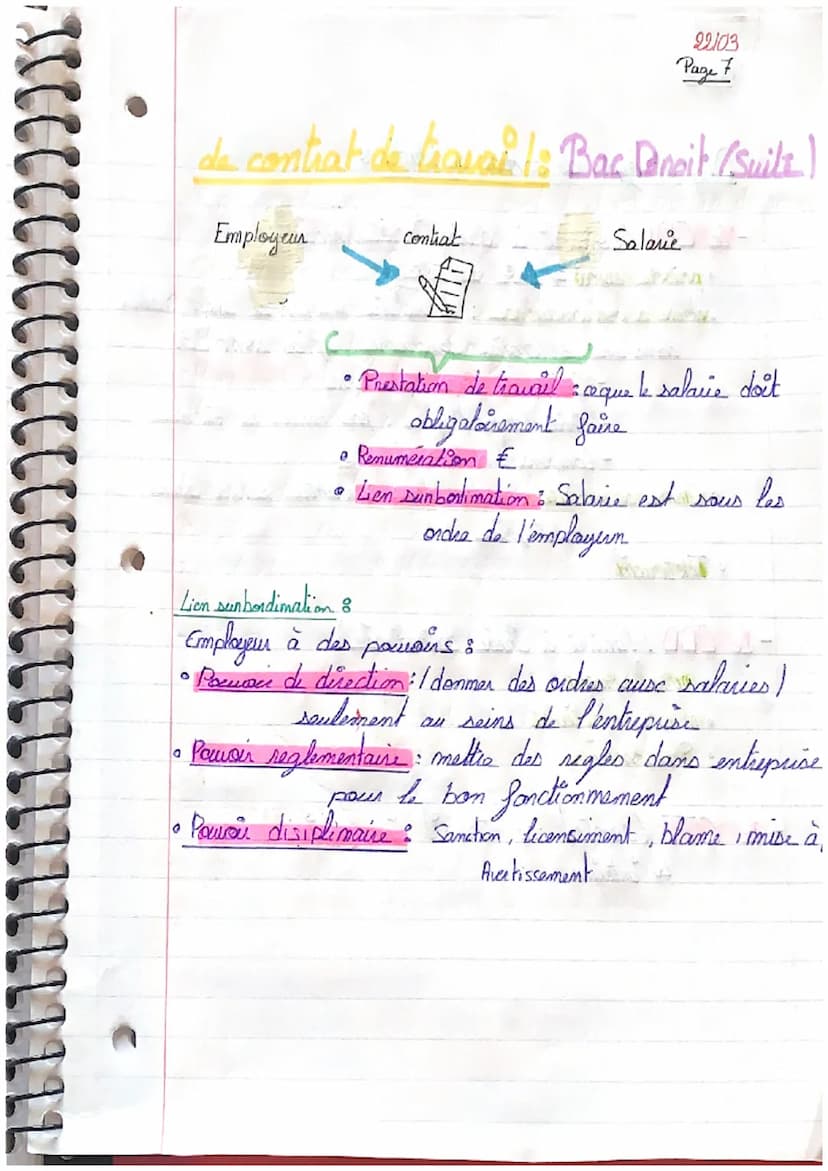 22/03
Page 7
Le contrat de travail : Bac Droit (Suite)
Employeur contrat Salarié
• Prestation de travail : ce que le salarie doit
obligatoirement faire
• Renumération €
• Lien sunbordination : Salarie est sous les
ordre de l'employeur
Lien sunbordination :
Employeur à des pouvoirs :
• Pouvoir de direction : (donner des ordres aux salaries)
seulement au seins de l'entreprise
• Pouvoir reglementaire : mettre des regles dans entreprise
pour le bon fonctionnement
• Pouvoir disiplinaire : Sanction, licensiment, blame, mise à
Avertissement